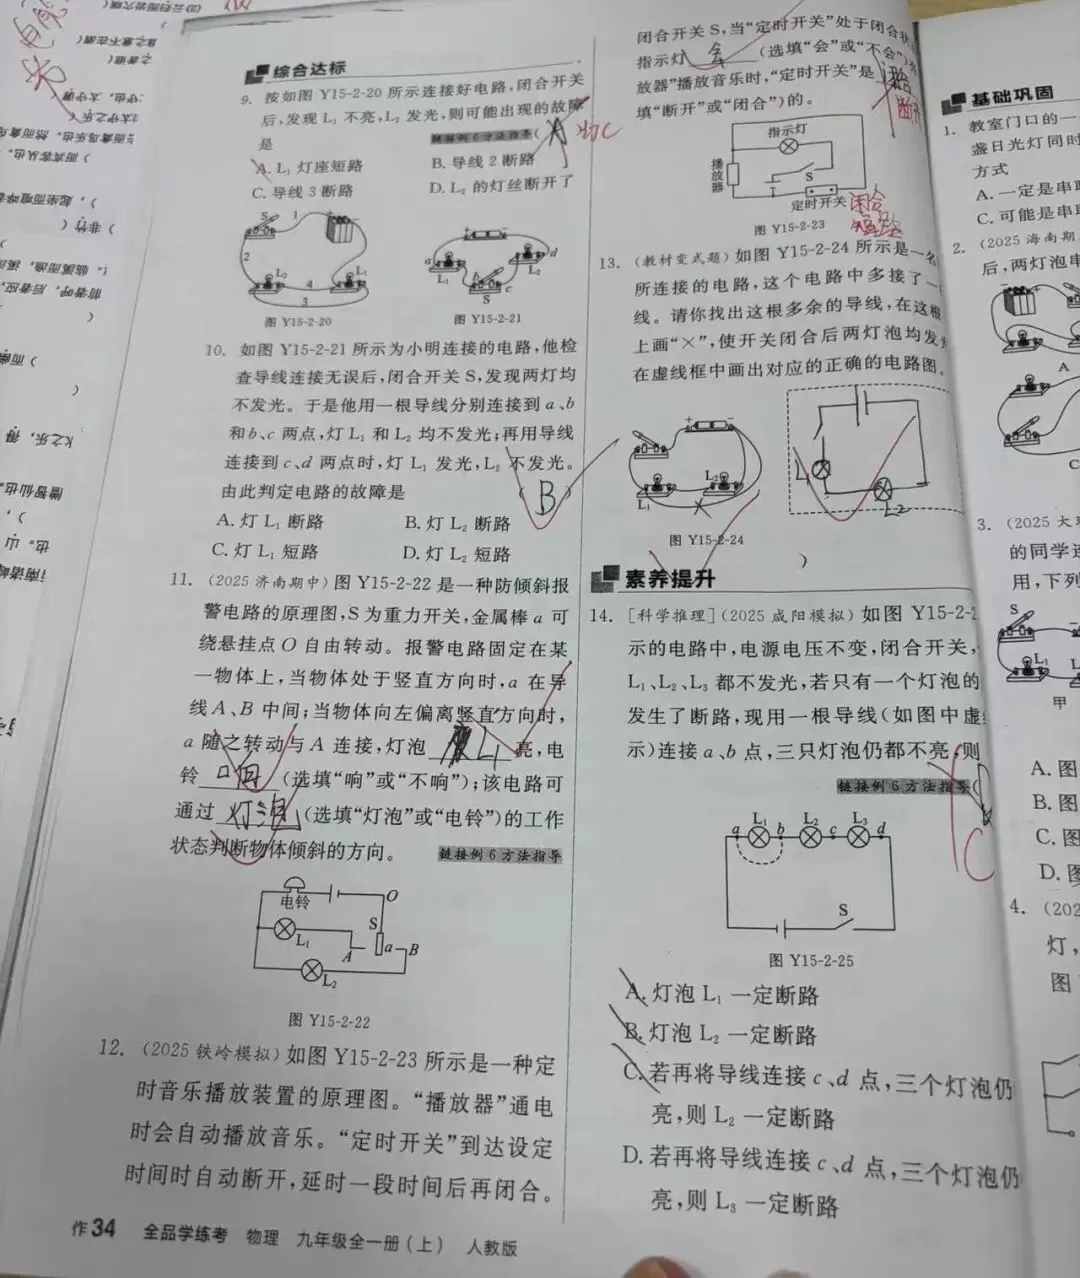 综合达标
9. 按如图 Y15-2-20 所示连接好电路,闭合开关
后,发现 L₁ 不亮,L₂ 发光,则可能出现的故障
是
链接例 6 方法指导(
A
A. L₁ 灯座短路
B. 导线 2 断路
C. 导线 3 断路
D. L₂ 的灯丝断开了
S 1 2 L₂ 4 L₁ 3
图 Y15-2-20
a L₁ b S c L₂ d
图 Y15-2-21
10. 如图 Y15-2-21 所示为小明连接的电路,他检
查导线连接无误后,闭合开关 S,发现两灯均
不发光。于是他用一根导线分别连接到 a、b
和b、c 两点,灯 L₁ 和 L₂ 均不发光;再用导线
连接到 c、d 两点时,灯 L₁ 发光,L₂ 不发光。
由此判定电路的故障是
( B )
A. 灯 L₁ 断路
B. 灯 L₂ 断路
C. 灯 L₁ 短路
D. 灯 L₂ 短路
11. (2025 济南期中)图 Y15-2-22 是一种防倾斜报
警电路的原理图,S 为重力开关,金属棒 a 可
绕悬挂点 O 自由转动。报警电路固定在某
一物体上,当物体处于竖直方向时,a 在导
线 A、B 中间;当物体向左偏离竖直方向时,
a 随之转动与 A 连接,灯泡 L₁ 亮,电
铃 响 (选填“响”或“不响”);该电路可
通过 灯泡 (选填“灯泡”或“电铃”)的工作
状态判断物体倾斜的方向。
链接例 6 方法指导
电铃 O S L₁ A a B L₂
图 Y15-2-22
12. (2025 铁岭模拟)如图 Y15-2-23 所示是一种定
时音乐播放装置的原理图。“播放器”通电
时会自动播放音乐。“定时开关”到达设定
时间时自动断开,延时一段时间后再闭合。
作 34 全品学练考 物理 九年级全一册(上) 人教版
闭合开关 S,当“定时开关”处于闭合状
指示灯 会 (选填“会”或“不会”)
放器”播放音乐时,“定时开关”是
断开
填“断开”或“闭合”)的。
指示灯
播放器
S
定时开关
闭合
短路
图 Y15-2-23
13. (教材变式题)如图 Y15-2-24 所示是一名
所连接的电路,这个电路中多接了一
线。请你找出这根多余的导线,在这根
上画“×”,使开关闭合后两灯泡均发
在虚线框中画出对应的正确的电路图。
L₁ L₂
L₁ L2
图 Y15-2-24
)
素养提升
14. [科学推理](2025 咸阳模拟)如图 Y15-2-2
示的电路中,电源电压不变,闭合开关,
L₁、L₂、L₃ 都不发光,若只有一个灯泡的
发生了断路,现用一根导线(如图中虚
示)连接 a、b 点,三只灯泡仍都不亮,则
链接例 6 方法指导(
C
a L₁ b L₂ c L₃ d
S
图 Y15-2-25
A. 灯泡 L₁ 一定断路
B. 灯泡 L₂ 一定断路
C. 若再将导线连接 c、d 点,三个灯泡仍
亮,则 L₂ 一定断路
D. 若再将导线连接 c、d 点,三个灯泡仍
亮,则 L₃ 一定断路
基础巩固
1. 教室门口的一
盏日光灯同时
方式
A. 一定是串
C. 可能是串
2. (2025 海南期
后,两灯泡串
A
C
3. (2025 大
的同学
用,下列
S
L₁
甲
A. 图
B. 图
C. 图
D. 图
4. (202
灯,
图